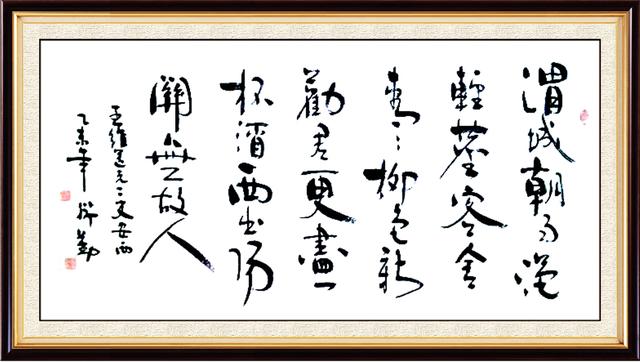 渭城朝雨浥
輕塵客舍
青々柳色新
勸君更盡一
杯酒西出陽
關無故人
王維送元二使安西
乙未年